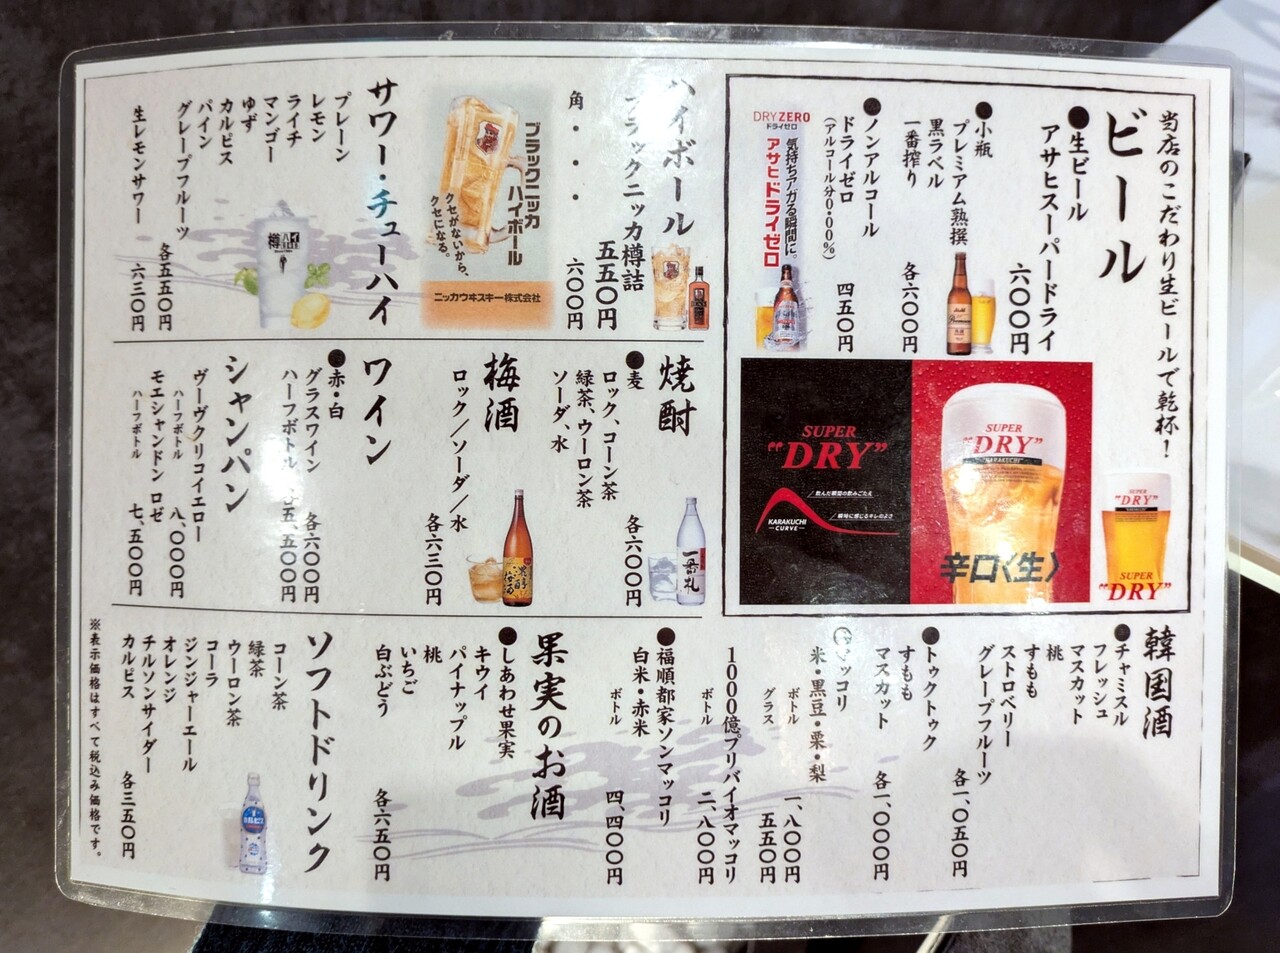 当店のこだわり生ビールで乾杯！
ビール
●生ビール
アサヒスーパードライ
六〇〇円
●小瓶
プレミアム熟撰
黒ラベル
一番搾り
各六〇〇円
●ノンアルコール
ドライゼロ
（アルコール分0.00%）
四五〇円
DRY ZERO
ドライゼロ
気持ちアガる瞬間に。
アサヒドライゼロ
SUPER
"DRY"
飲んだ瞬間の飲みごたえ
瞬時に感じるキレのよさ
KARAKUCHI
CURVE
SUPER
"DRY"
KARAKUCHI
辛口〈生〉
SUPER
"DRY"
SUPER
"DRY"
ハイボール
ブラックニッカ樽詰
五五〇円
角・・・
六〇〇円
ブラックニッカ
ハイボール
クセがないから、
クセになる。
ニッカウヰスキー株式会社
サワー・チューハイ
プレーン
レモン
ライチ
マンゴー
ゆず
カルピス
パイン
グレープフルーツ
各五五〇円
生レモンサワー
六三〇円
焼酎
●麦
ロック、コーン茶
緑茶、ウーロン茶
ソーダ、水
各六〇〇円
一番札
梅酒
ロック／ソーダ／水
各六三〇円
ワイン
●赤・白
グラスワイン
各六〇〇円
ハーフボトル
各五、五〇〇円
シャンパン
ヴーヴクリコイエロー
ハーフボトル
八、〇〇〇円
モエシャンドン ロゼ
ハーフボトル
七、五〇〇円
韓国酒
●チャミスル
フレッシュ
マスカット
桃
すもも
ストロベリー
グレープフルーツ
各一、〇五〇円
●トゥクトゥク
すもも
マスカット
各一、〇〇〇円
マッコリ
米・黒豆・栗・梨
ボトル
一、八〇〇円
グラス
五五〇円
1000億プリバイオマッコリ
ボトル
二、八〇〇円
●福順都家ソンマッコリ
白米・赤米
ボトル
四、四〇〇円
果実のお酒
●しあわせ果実
キウイ
パイナップル
桃
いちご
白ぶどう
各六五〇円
ソフトドリンク
コーン茶
緑茶
ウーロン茶
コーラ
ジンジャーエール
オレンジ
チルソンサイダー
カルピス
各三五〇円
※表示価格はすべて税込み価格です。